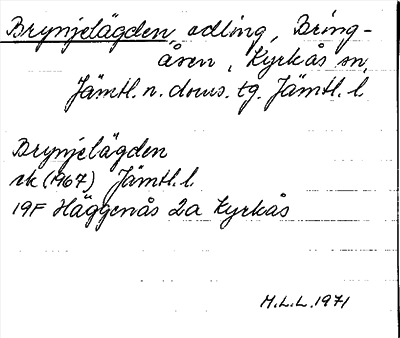 Brynjelägden, odling, Bring-
åsen, Kyrkås sn,
Jämtl. n. doms. tg. Jämtl. l.
Brynjelägden
rk (1967) Jämtl. l.
19F Häggenås 2a Kyrkås
M.L.L. 1971